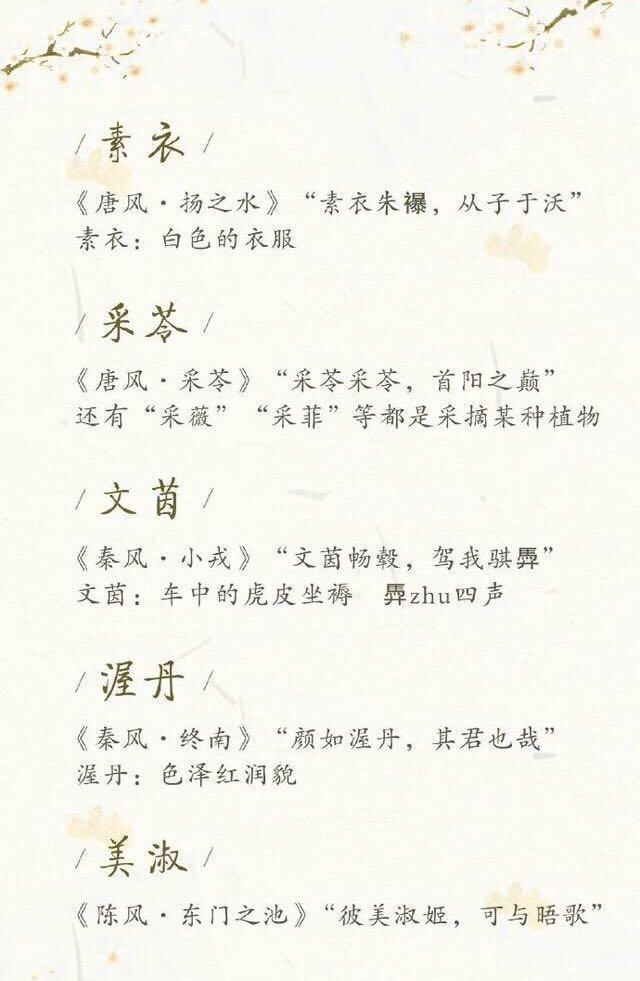 / 素衣 /
《唐风·扬之水》“素衣朱襮，从子于沃”
素衣：白色的衣服
/ 采苓 /
《唐风·采苓》“采苓采苓，首阳之巅”
还有“采薇”“采菲”等都是采摘某种植物
/ 文茵 /
《秦风·小戎》“文茵畅毂，驾我骐馵”
文茵：车中的虎皮坐褥 馵zhu四声
/ 渥丹 /
《秦风·终南》“颜如渥丹，其君也哉”
渥丹：色泽红润貌
/ 美淑 /
《陈风·东门之池》“彼美淑姬，可与晤歌”